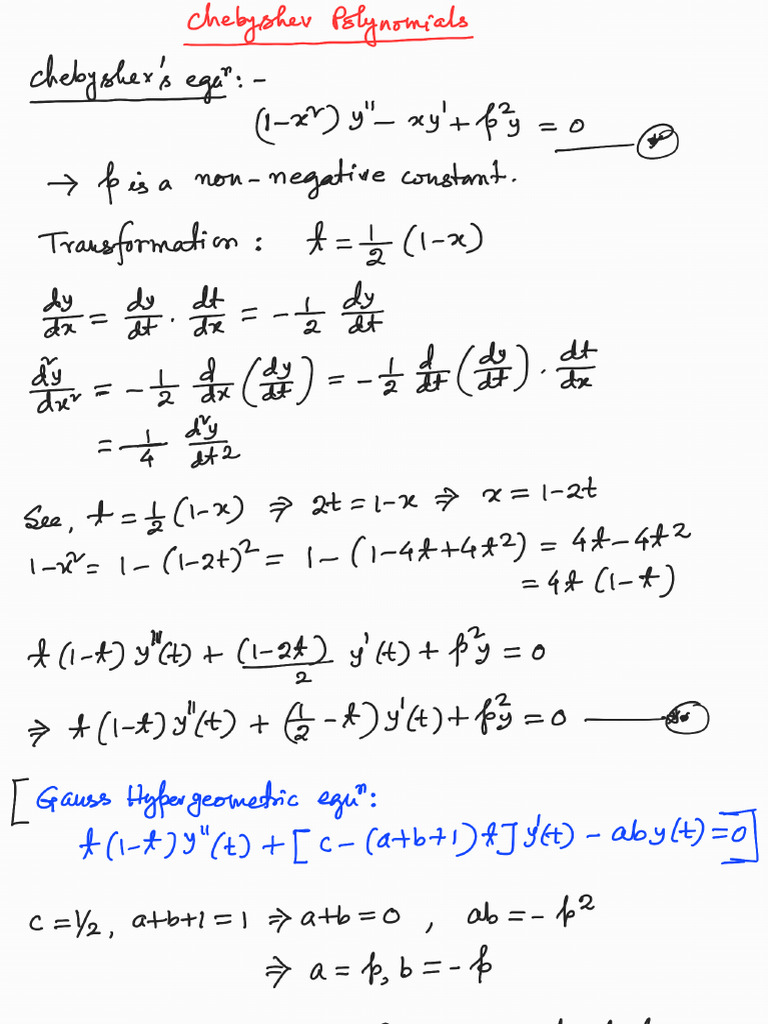 Chebyshev Polynomials
Chebyshev's equⁿ : -
(1-x²) y'' - xy' + p²y = 0 —— (*)
→ p is a non-negative constant.
Transformation : t = 1/2 (1-x)
dy/dx = dy/dt . dt/dx = - 1/2 dy/dt
d²y/dx² = - 1/2 d/dx (dy/dt) = - 1/2 d/dt (dy/dt) . dt/dx
= 1/4 d²y/dt²
See, t = 1/2 (1-x) ⇒ 2t = 1-x ⇒ x = 1-2t
1-x² = 1 - (1-2t)² = 1 - (1-4t+4t²) = 4t-4t²
= 4t (1-t)
t(1-t) y''(t) + (1-2t)/2 y'(t) + p²y = 0
⇒ t(1-t) y''(t) + (1/2 - t) y'(t) + p²y = 0 —— (**)
[ Gauss Hypergeometric equⁿ:
t(1-t) y''(t) + [ c - (a+b+1) t ] y'(t) - ab y(t) = 0 ]
c = 1/2, a+b+1 = 1 ⇒ a+b = 0 , ab = - p²
⇒ a = p, b = - p